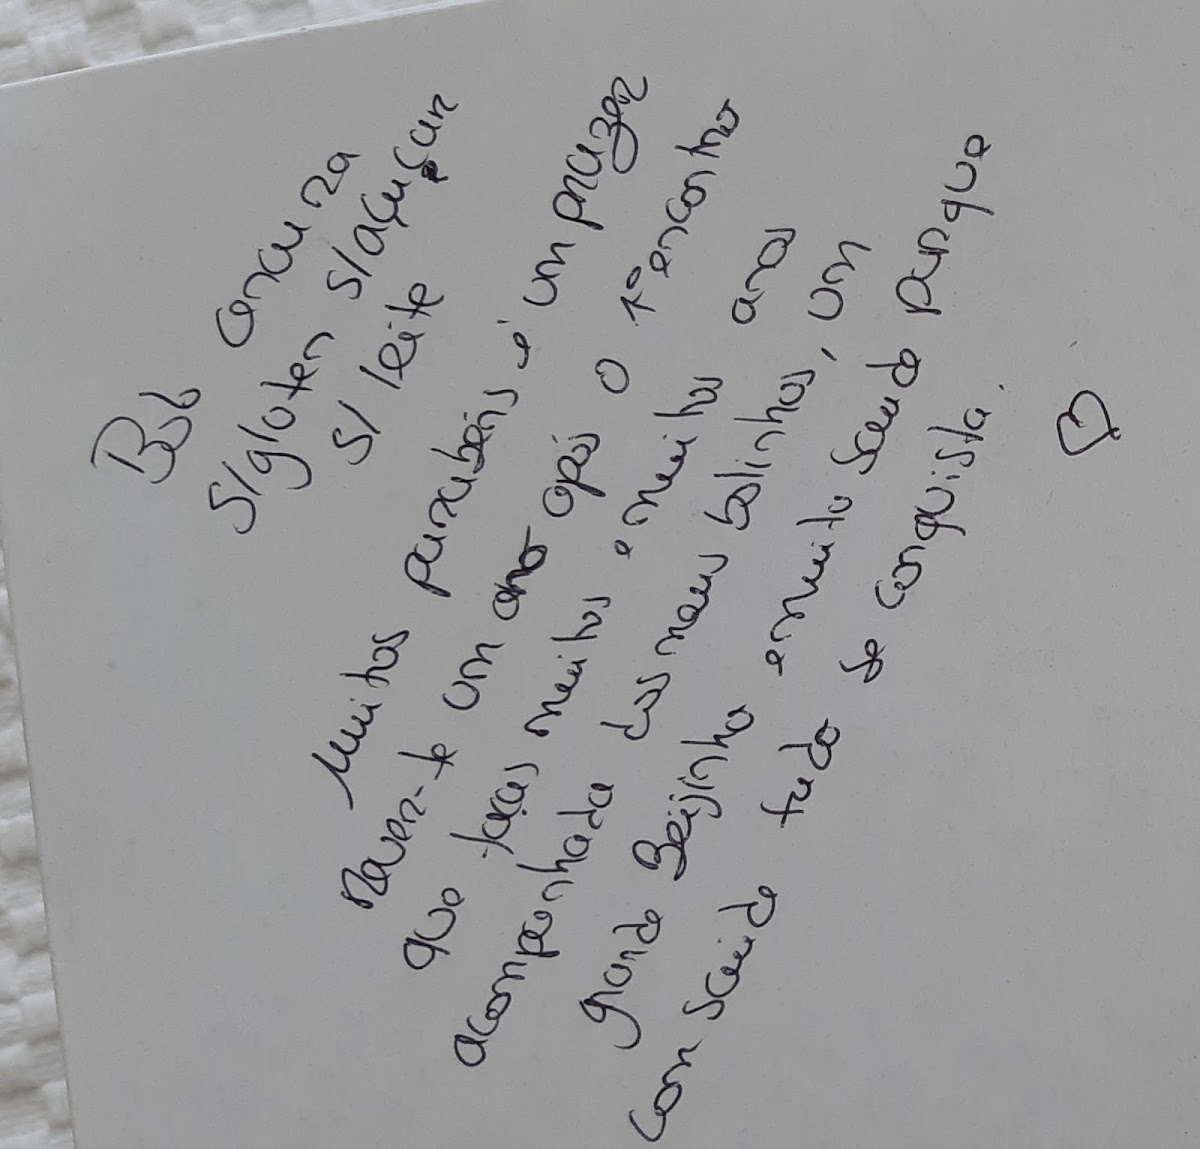 Bolo cenoura
s/gluten s/açucar
s/ leite
Muitos parabéns é um prazer
rever-te um ano após o 1º encontro
que faças muitos e muitos anos
acompanhada dos meus bolinhos, um
grande Beijinho e muita saude porque
com saude tudo se conquista.